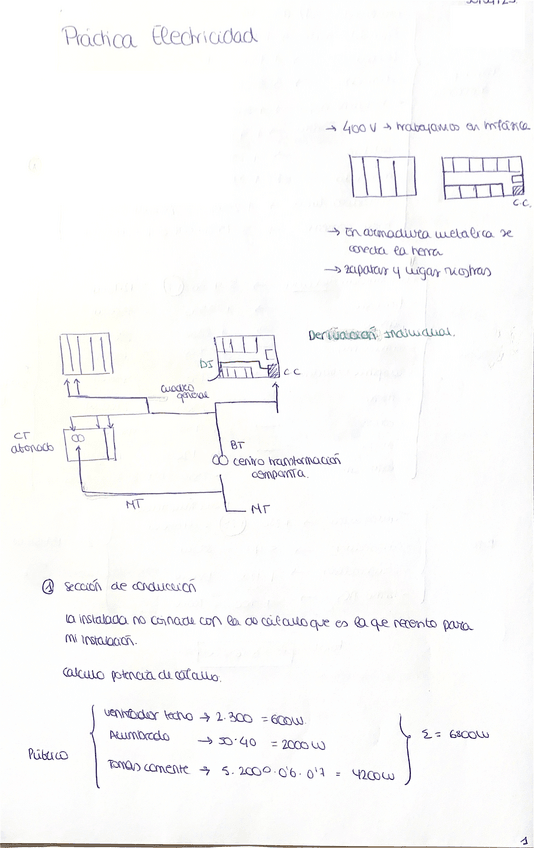 Práctica Electricidad
→ 400 V → trabajamos en trifásica
C.C.
→ En armadura metalica se
conecta la tierra
→ zapatas y vigas riostras
Derivación individual.
DI
C.C
cuadro
general
CT
abonado
BT
centro transformación
compañia.
MT
MT
① sección de conducción
la instalada no coincide con la de cálculo que es la que necesito para
mi instalación.
calculo potencia de cálculo.
Público
ventilador techo → 2.300 = 600W.
Alumbrado → 50.40 = 2000 W
Tomas corriente → 5.2000.0'6.0'7 = 4200W
Σ = 6800W
1